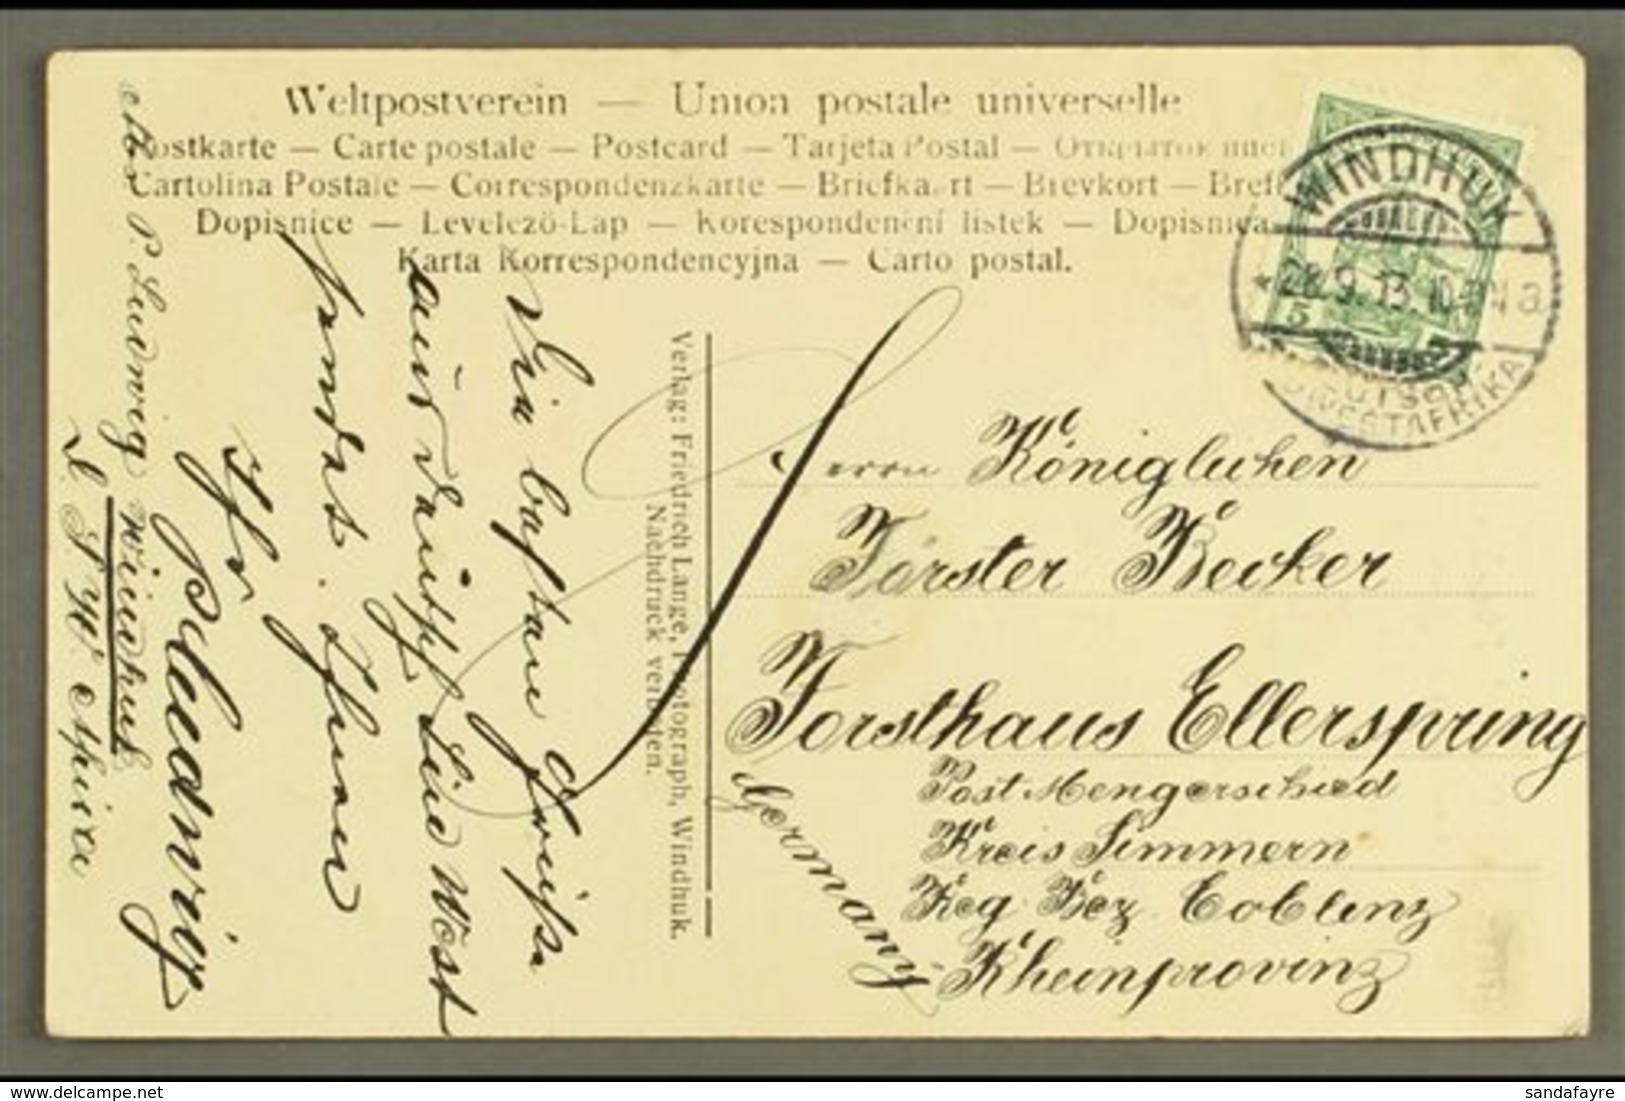 Weltpostverein — Union postale universelle
Postkarte — Carte postale — Postcard — Tarjeta Postal —
Cartolina Postale — Correspondenzkarte — Briefkaart — Brevkort —
Dopisnice — Levelező-Lap — Korespondenční lístek — Dopisnica
Karta Korrespondencyjna — Carto postal.
WINDHUK
9. 13. 10-
a
DEUTSCH-
SÜDWESTAFRIKA
5
Die besten Grüsse
aus Deutsch Süd West
sendet Ihnen
Ihr
P. Ludwig
Windhuk
Verlag: Friedrich Lange, Photograph, Windhuk.
Nachdruck verboten.
Herrn Königlichen
Förster Becker
Forsthaus Ellerspring
Post Mengerschied
Kreis Simmern
Reg. Bez. Coblenz
Rheinprovinz
Germany
delcampe.net
sandafayre